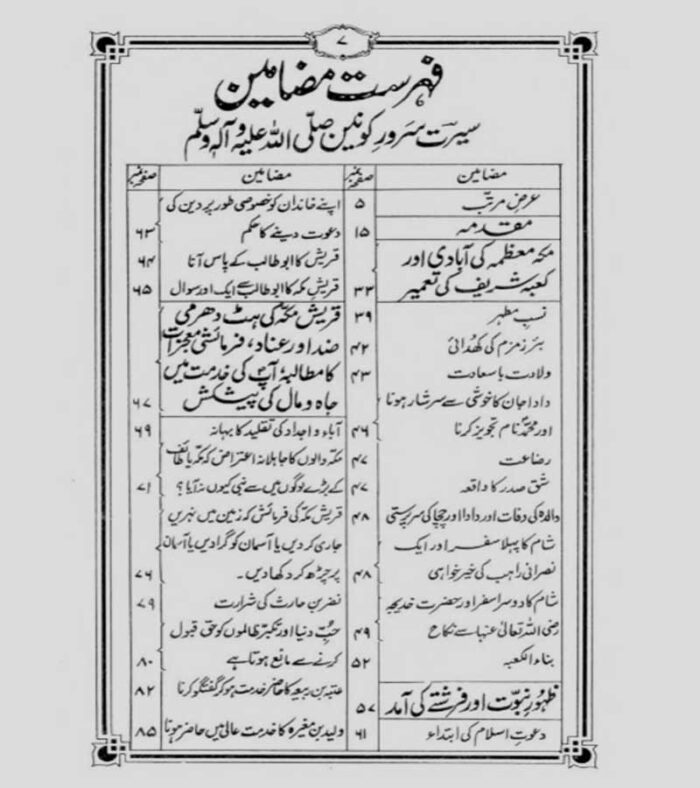 ۷
فہرست مضامین
سیرت سرور کونین صلی اللہ علیہ وآلہ وسلم
مضامین صفحہ نمبر
عرض مرتب ۵
مقدمہ ۱۵
مکہ معظمہ کی آبادی اور
کعبہ شریف کی تعمیر ۳۳
نسب مطہر ۳۹
بئر زمزم کی کھدائی ۴۲
ولادت باسعادت ۴۳
دادا جان کا خوشی سے سرشار ہونا
اور محمدؐ نام تجویز کرنا ۴۶
رضاعت ۴۷
شق صدر کا واقعہ ۴۷
والدہ کی وفات اور دادا اور چچا کی سرپرستی ۴۸
شام کا پہلا سفر اور ایک
نصرانی راہب کی خیر خواہی ۴۸
شام کا دوسرا سفر اور حضرت خدیجہ
رضی اللہ تعالیٰ عنہا سے نکاح ۴۹
بناء الکعبہ ۵۲
ظہور نبوت اور فرشتے کی آمد ۵۷
دعوت اسلام کی ابتداء ۶۱
مضامین صفحہ نمبر
اپنے خاندان کو خصوصی طور پر دین کی
دعوت دینے کا حکم ۶۳
قریش کا ابو طالب کے پاس آنا ۶۴
قریش مکہ کا ابو طالب سے ایک اور سوال ۶۵
قریش مکہ کی ہٹ دھرمی
ضد اور عناد، فرمائشی معجزات
کا مطالبہ آپؐ کی خدمت میں
جاہ و مال کی پیشکش ۶۷
آباء و اجداد کی تقلید کا بہانہ ۶۹
مکہ والوں کا جاہلانہ اعتراض کہ مکہ یا طائف
کے بڑے لوگوں میں سے نبی کیوں نہ آیا؟ ۷۱
قریش مکہ کی فرمائش کہ زمین میں نہریں
جاری کر دیں یا آسمان کو گرا دیں یا آسمان
پر چڑھ کر دکھا دیں۔ ۷۶
نضر بن حارث کی شرارت ۷۹
حب دنیا اور تکبر ظالموں کو حق قبول
کرنے سے مانع ہوتا ہے ۸۰
عتبہ بن ربیعہ کا حاضر خدمت ہو کر گفتگو کرنا ۸۲
ولید بن مغیرہ کا خدمت عالی میں حاضر ہونا ۸۵